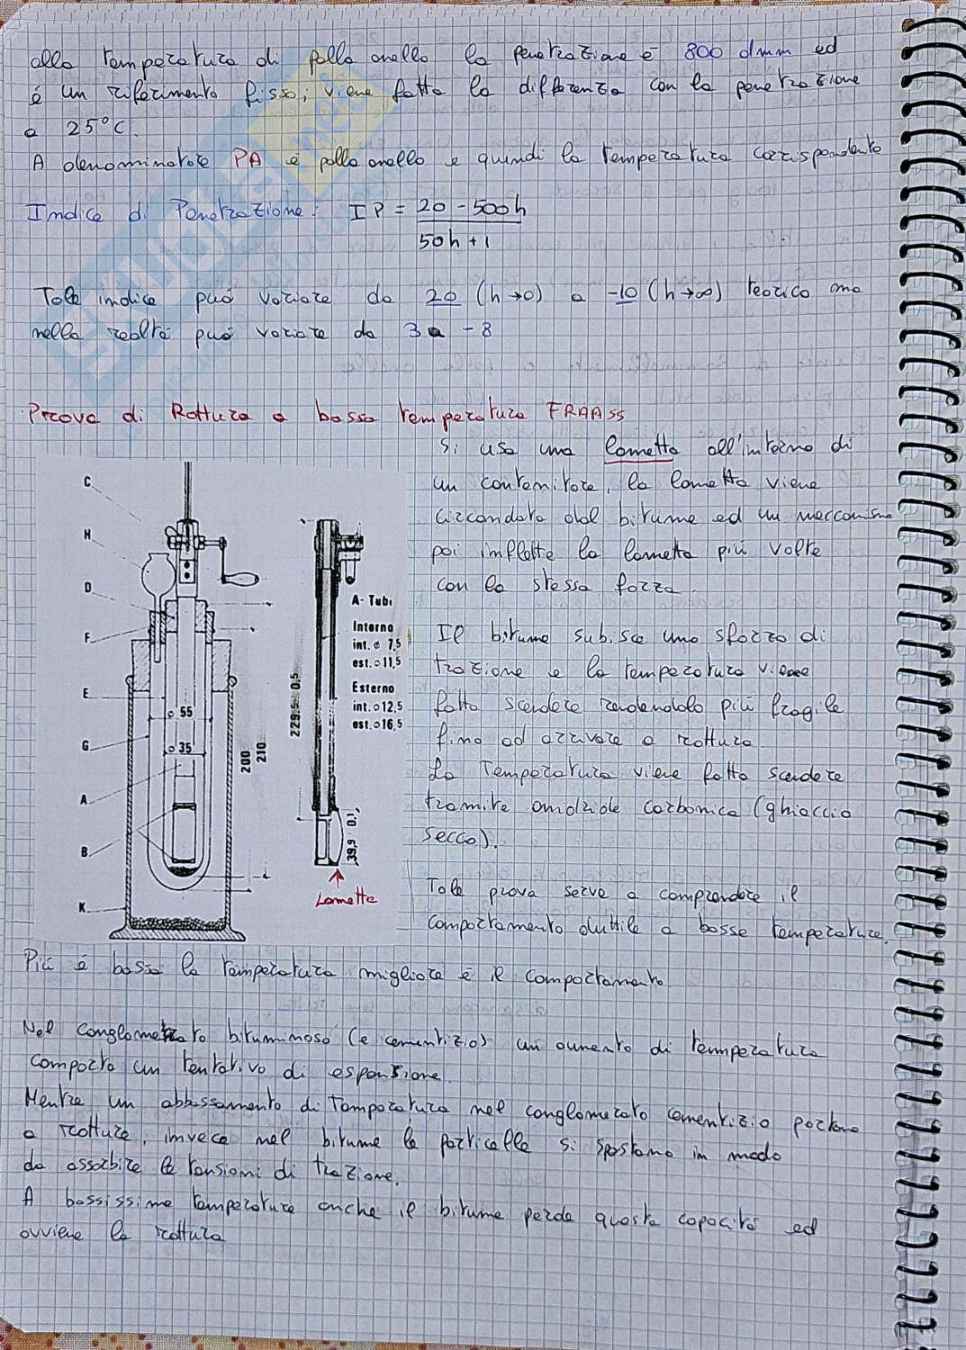 alla temperatura di palla anello la penetrazione è 800 dmm ed
è un riferimento fisso; viene fatta la differenza con la penetrazione
a 25°C.
A denominatore PA è palla anello e quindi la temperatura corrispondente
Indice di Penetrazione: IP = 20 - 500h
50h + 1
Tale indice può variare da 20 (h→0) a -10 (h→∞) teorico ma
nella realtà può variare da 3 a - 8
Prova di Rottura a bassa temperatura FRAASS
Si usa una lametta all'interno di
un contenitore, la lametta viene
circondata dal bitume ed un meccanismo
poi inflette la lametta più volte
con la stessa forza.
Il bitume subisce uno sforzo di
trazione e la temperatura viene
fatta scendere rendendolo più fragile
fino ad arrivare a rottura.
La Temperatura viene fatta scendere
tramite anidride carbonica (ghiaccio
secco).
Tale prova serve a comprendere il
comportamento duttile a basse temperature.
C
H
D
F
E
G
A
B
K
ø 55
ø 35
200
210
229,5 0,5
A- Tubi
Interno
int. ø 7,5
est. ø 11,5
Esterno
int. ø 12,5
est. ø 16,5
39,9 0,1
Lametta
Più è bassa la temperatura migliore è il comportamento
Nel conglomerato bituminoso (e cementizio) un aumento di temperatura
comporta un tentativo di espansione.
Mentre un abbassamento di Temperatura nel conglomerato cementizio portano
a rotture, invece nel bitume le particelle si spostano in modo
da assorbire le tensioni di trazione.
A bassissime temperature anche il bitume perde questa capacità ed
avviene la rottura
SKUOLA.net